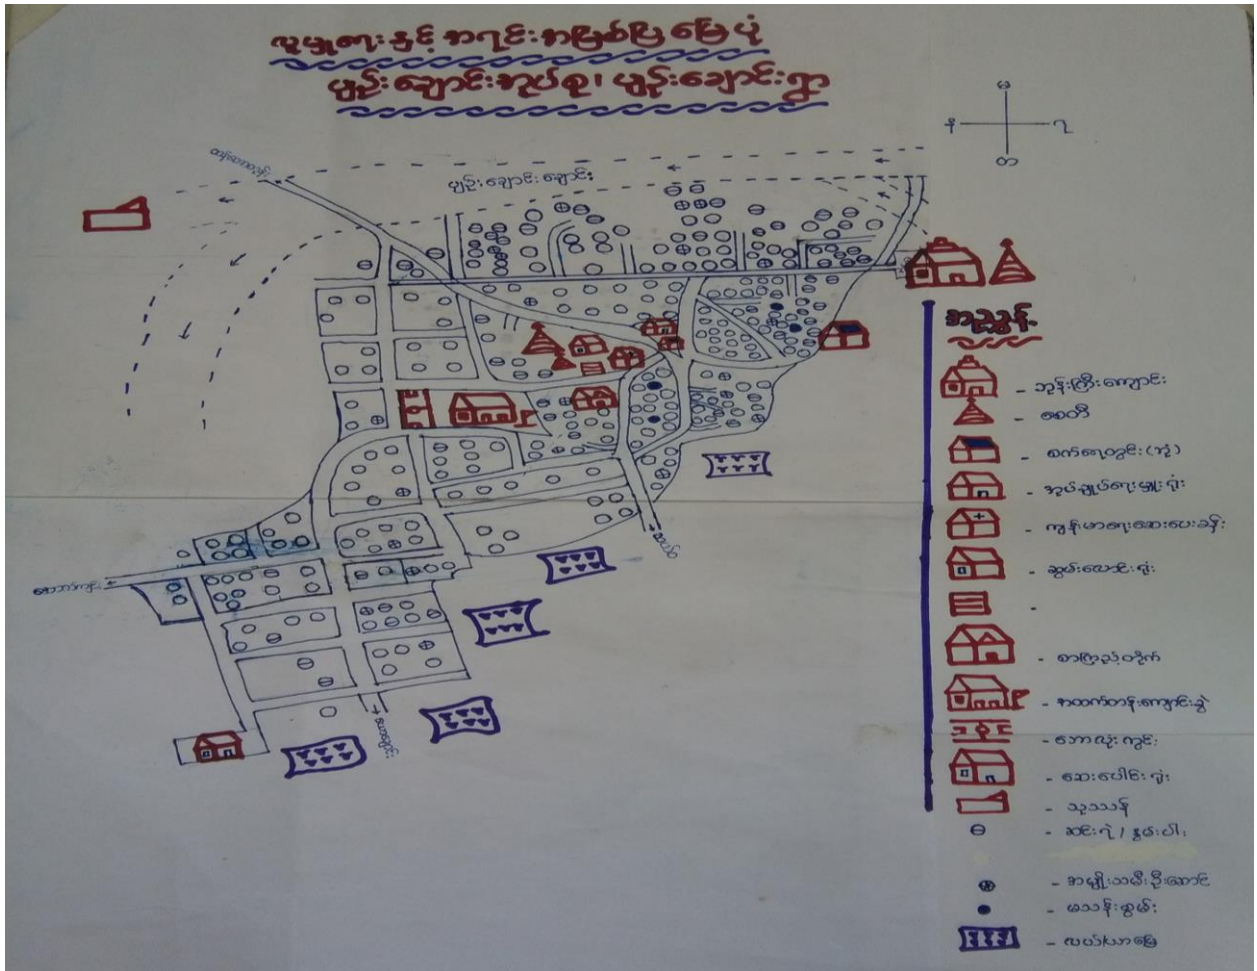 လူမှုရေးနှင့် အရင်းအမြစ်ပြ မြေပုံ
မျဉ်းချောင်းအုပ်စု၊ မျဉ်းချောင်းရွာ
မ
န
ရ
တ
မျဉ်းချောင်းချောင်း
အညွှန်း
- ဘုန်းကြီးကျောင်း
- စေတီ
- စက်ရေတွင်း (ဘုံ)
- အုပ်ချုပ်ရေးမှူးရုံး
- ကျန်းမာရေးဆေးပေးခန်း
- ဆွမ်းလောင်းရုံး
-
- စာကြည့်တိုက်
- အထက်တန်းကျောင်းခွဲ
- ဘောလုံးကွင်း
- ဆေးပေါင်းရုံး
- သုဿန်
- ဆင်းရဲ / နွမ်းပါး
- အမျိုးသမီးဦးဆောင်
- မသန်စွမ်း
- လယ်/ယာမြေ